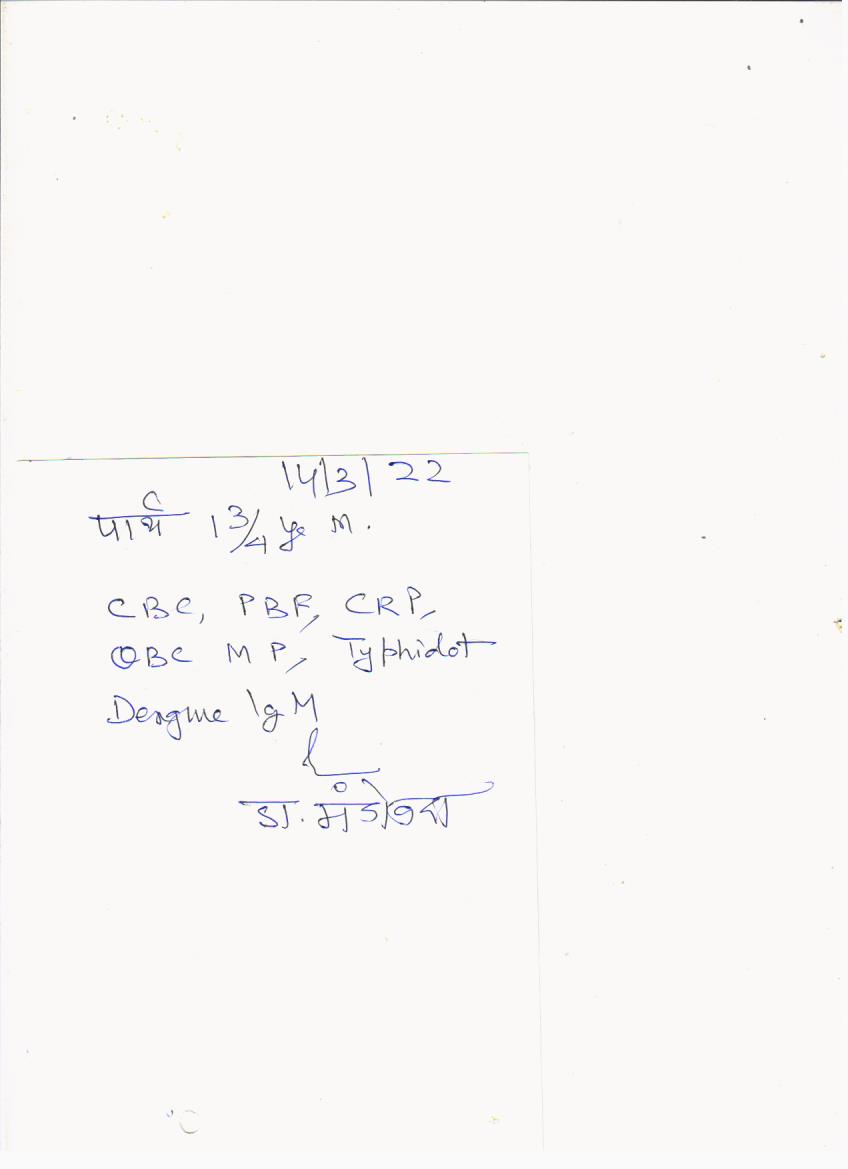 14/3/22
पार्थ 1 3/4 yr M.
CBC, PBF, CRP,
QBC MP, Typhidot
Dengue IgM
डा.